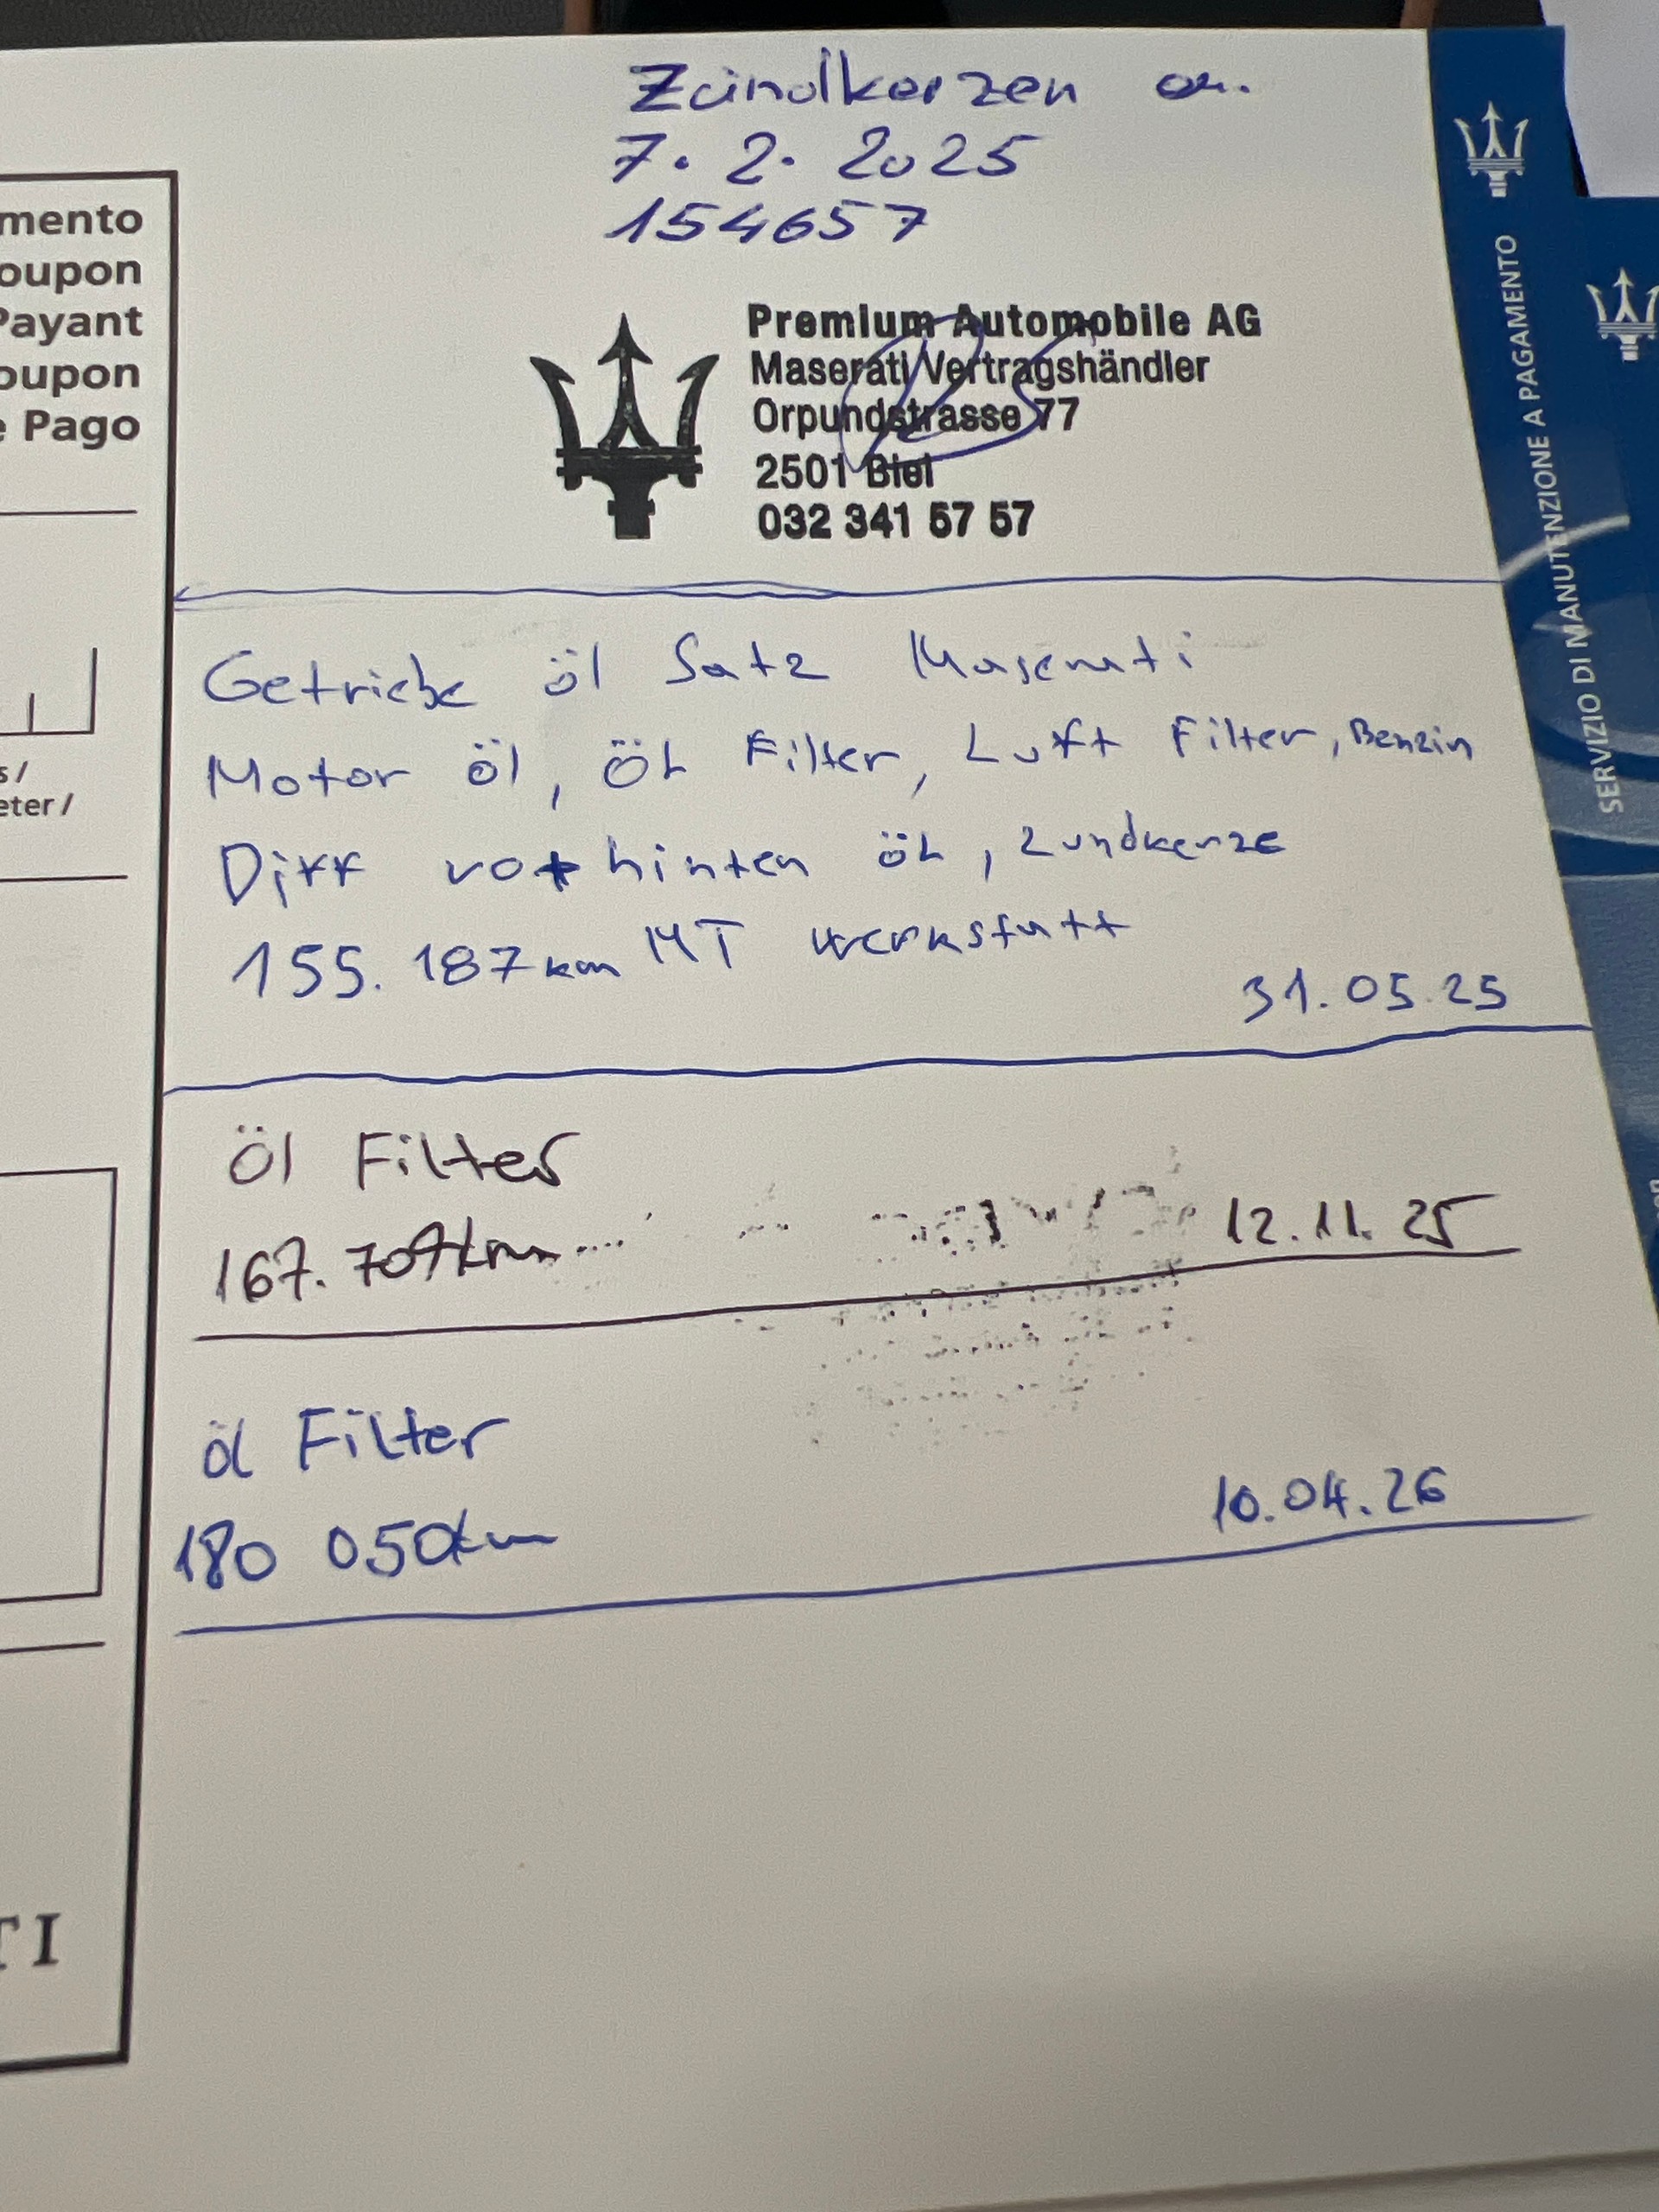 Zündkerzen er.
7. 2. 2025
154657
Premium Automobile AG
Maserati Vertragshändler
Orpundstrasse 77
2501 Biel
032 341 57 57
Getriebe öl Satz Maserati
Motor öl, Öl Filter, Luft Filter, Benzin
Diff vo + hinten öl, Zundkerze
155.187km MT Werkstatt
31.05.25
Öl Filter
167.709km
12.11.25
öl Filter
180 050km
10.04.26
mento
oupon
Payant
oupon
e Pago
s/
eter/
TI
SERVIZIO DI MANUTENZIONE A PAGAMENTO